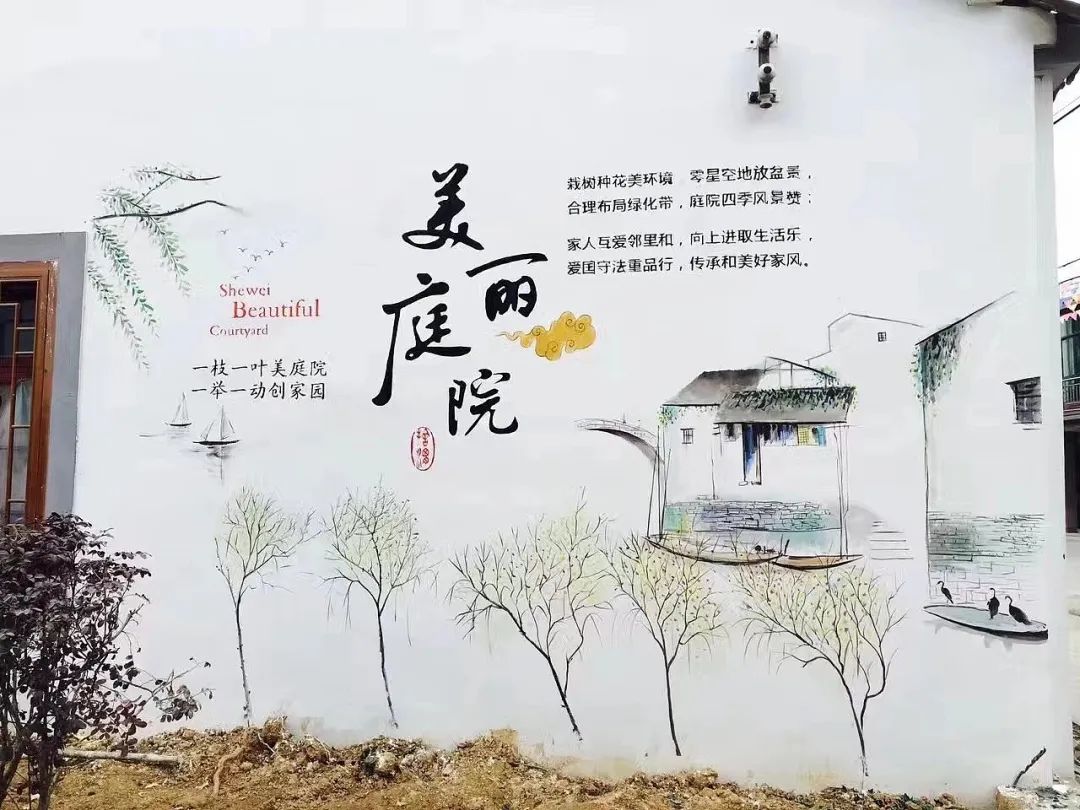 美丽
庭院
栽树种花美环境 零星空地放盆景，
合理布局绿化带，庭院四季风景赞；
家人互爱邻里和，向上进取生活乐，
爱国守法重品行，传承和美好家风。
Shewei
Beautiful
Courtyard
一枝一叶美庭院
一举一动创家园